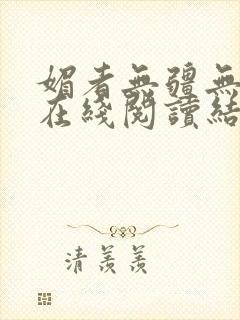 媚者無疆無
在綫閱讀結
清羨羨